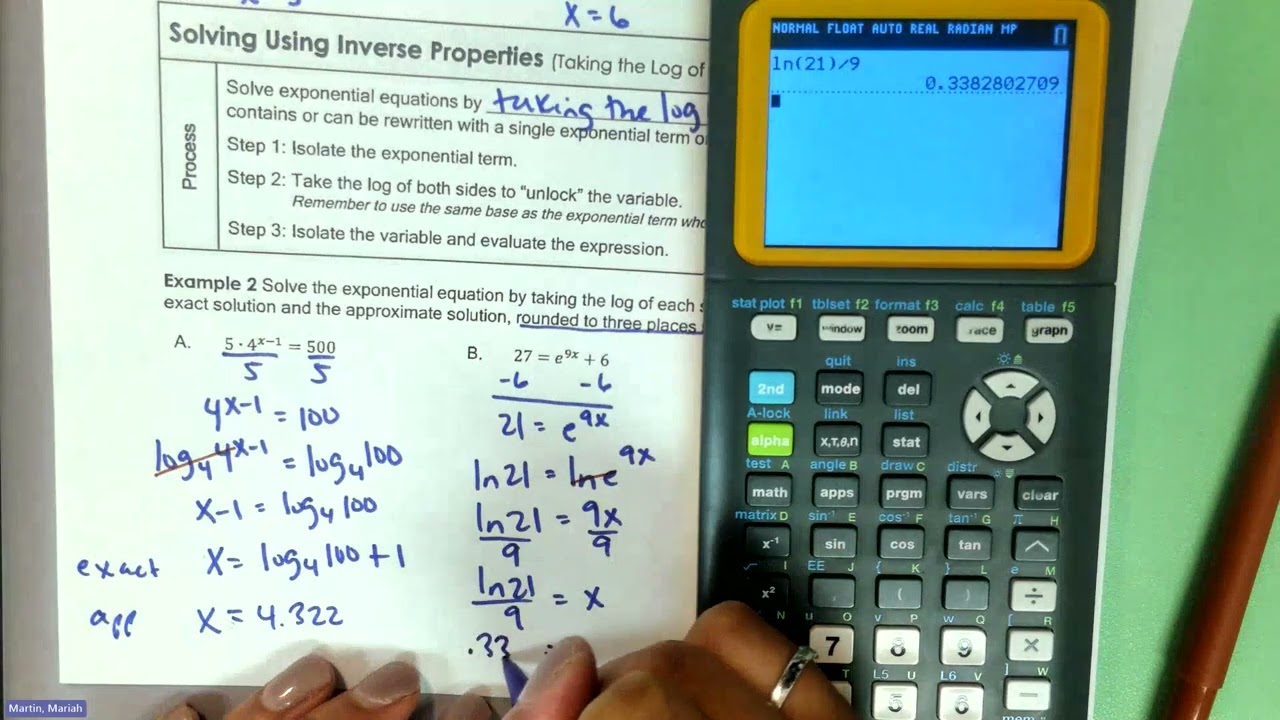 x = 6
Solving Using Inverse Properties (Taking the Log of
Process
Solve exponential equations by taking the log
contains or can be rewritten with a single exponential term o
Step 1: Isolate the exponential term.
Step 2: Take the log of both sides to “unlock” the variable.
Remember to use the same base as the exponential term who
Step 3: Isolate the variable and evaluate the expression.
Example 2 Solve the exponential equation by taking the log of each s
exact solution and the approximate solution, rounded to three places
A. 5 · 4^(x−1) = 500
5 5
4^(x-1) = 100
log₄4^(x-1) = log₄100
x-1 = log₄100
exact x = log₄100 + 1
app x = 4.322
B. 27 = e^(9x) + 6
-6 -6
21 = e^(9x)
ln21 = lne^(9x)
ln21/9 = 9x/9
ln21/9 = x
.33 =
NORMAL FLOAT AUTO REAL RADIAN MP
ln(21)/9
0.3382802709
stat plot f1 tblset f2 format f3 calc f4 table f5
y= window zoom trace graph
quit ins
2nd mode del
A-lock link list
alpha x,τ,θ,n stat
test A angle B draw C distr
math apps prgm vars clear
matrix D sin⁻¹ E cos⁻¹ F tan⁻¹ G π H
x⁻¹ sin cos tan ^
√ I EE J { K } L e M
x² , ( ) ÷
N u O v P w Q [ R
7 8 9 ×
L5 U L6 V ] W
5 6 −
mem
Martin, Mariah